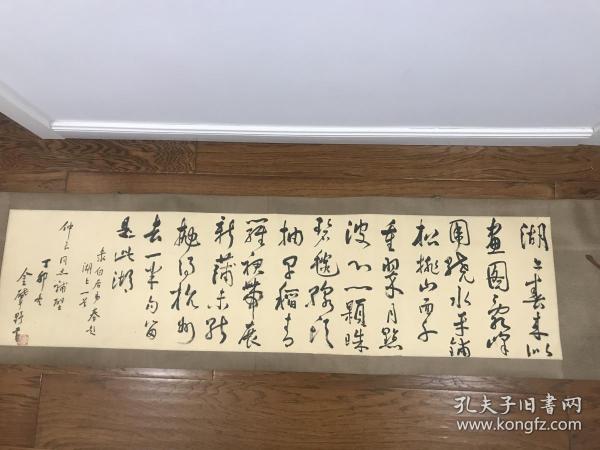 湖上春来似
画图乱峰
围绕水平铺
松排山面千
重翠月点
波心一颗珠
碧毯线头
抽早稻青
罗裙带展
新蒲未能
抛得杭州
去一半勾留
是此湖
录白居易春题
湖上一首
丁卯冬
孔夫子旧书网
www.kongfz.com